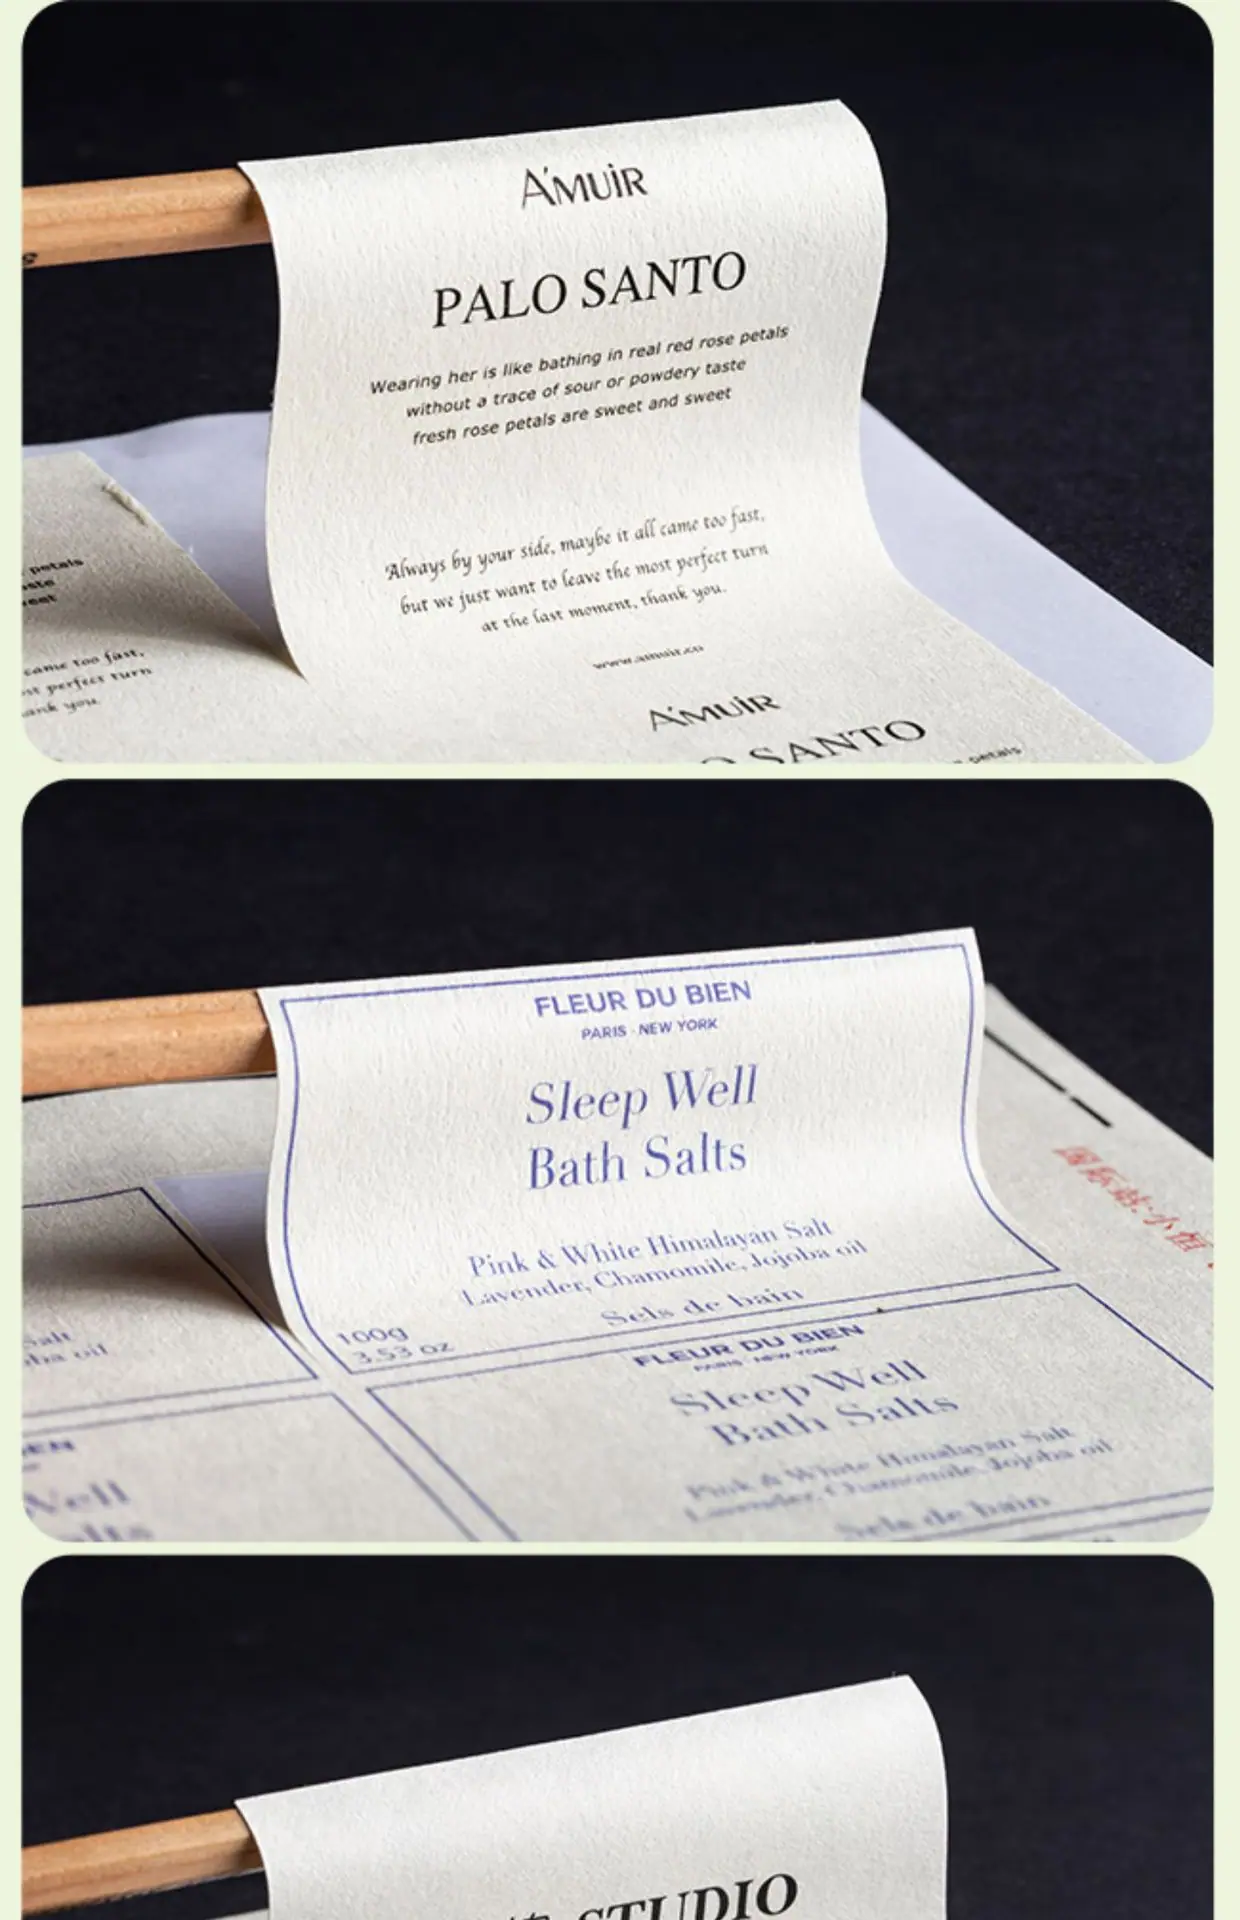 A'MUIR
PALO SANTO
Wearing her is like bathing in real red rose petals
without a trace of sour or powdery taste
fresh rose petals are sweet and sweet
Always by your side, maybe it all came too fast,
but we just want to leave the most perfect turn
at the last moment, thank you.
www.amuir.co
petals
came too fast,
perfect turn
you.
A'MUIR
SANTO
petals
FLEUR DU BIEN
PARIS · NEW YORK
Sleep Well
Bath Salts
Pink & White Himalayan Salt
Lavender, Chamomile, Jojoba oil
Sels de bain
100g
3.53 oz
oil
FLEUR DU BIEN
PARIS · NEW YORK
Sleep Well
Bath Salts
Pink & White Himalayan Salt
Lavender, Chamomile, Jojoba oil
Sels de bain
国际站:小恒
Well
STUDIO